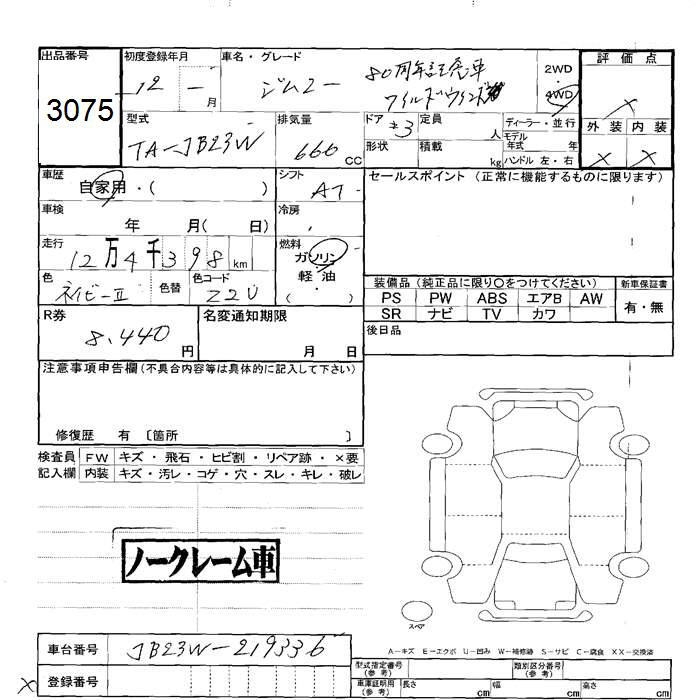 出品番号 初度登録年月 車名・グレード 評価点
3075 12 - 月 ジムニー 80周年記念車 2WD
ワイルドウインド 4WD ×
型式 排気量 ドア 定員 ディーラー・並行 外装 内装
TA-JB23W 660 CC 3 人 モデル年式 年 × ×
形状 積載 kg ハンドル 左・右
車歴 自家用・( ) シフト AT セールスポイント (正常に機能するものに限ります)
車検 年 月( 日) 冷房
走行 12万4千398km 燃料 ガソリン
軽油・
色 ネイビーII 色替 色コード Z2U 装備品 (純正品に限り○をつけてください) 新車保証書
PS PW ABS エアB AW 有・無
SR ナビ TV カワ
R券 8,440 円 名変通知期限 月 日 後日品
注意事項申告欄 (不具合内容等は具体的に記入して下さい)
修復歴 有 〔箇所 〕
検査員 FW キズ・飛石・ヒビ割・リペア跡・×要
記入欄 内装 キズ・汚レ・コゲ・穴・スレ・キレ・破レ
ノークレーム車
スペア
A-キズ E-エクボ U-凹み W-補修跡 S-サビ C-腐食 XX-交換済
車台番号 JB23W-219336
型式指定番号 (参考) 類別区分番号 (参考)
× 登録番号 車庫証明用 (参考) 長さ cm 幅 cm 高さ cm